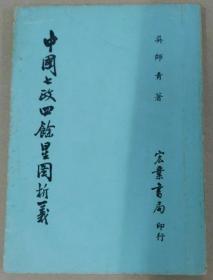 吳師青著
中國七政四餘星图析義
宏業書局印行